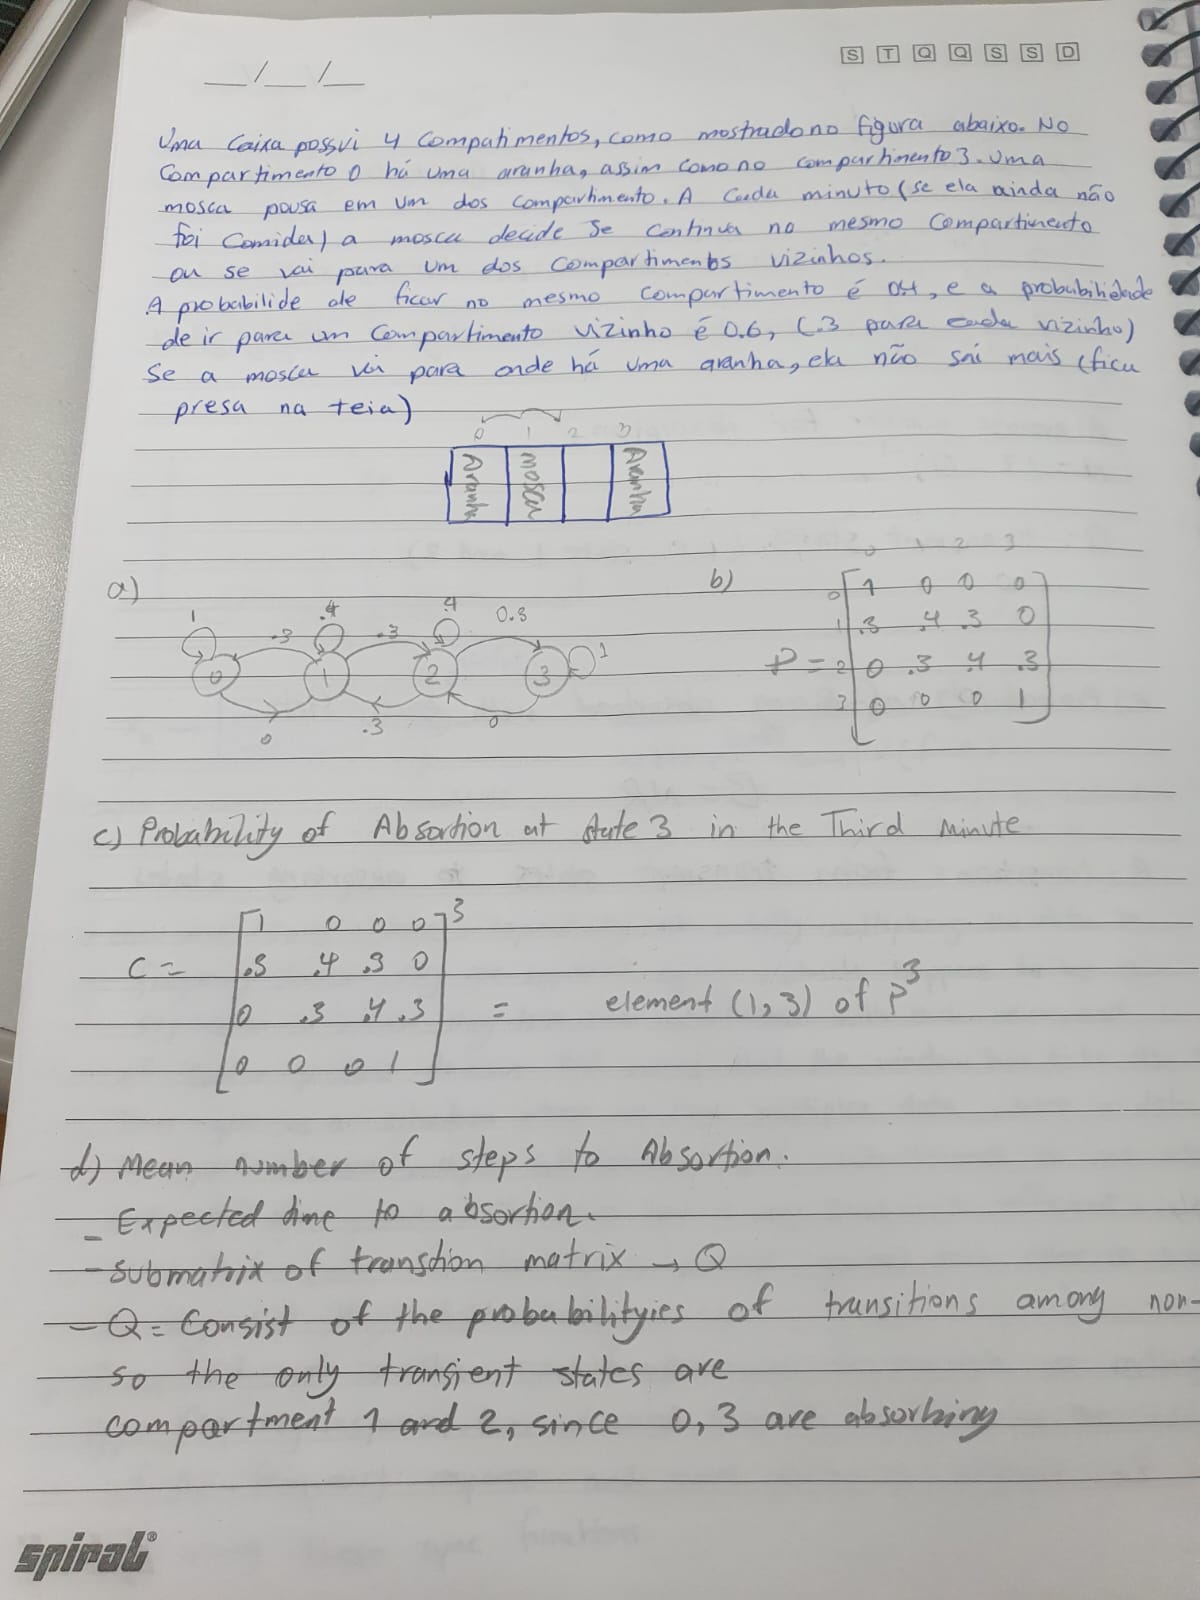 S T Q Q S S D
__/__/__
Uma Caixa possui 4 Compatimentos, como mostrado no figura abaixo. No
Compartimento 0 há uma aranha, assim como no compartimento 3. Uma
mosca pousa em um dos compartimento. A Cada minuto (se ela ainda não
foi Comida) a mosca decide Se Continua no mesmo Compartimento
ou se vai para um dos Compartimentos vizinhos.
A probabilide de ficar no mesmo Compartimento é 0.4, e a probabilidade
de ir para um Compartimento Vizinho é 0.6, (.3 para cada vizinho)
Se a mosca vai para onde há uma aranha, ela não sai mais (fica
presa na teia)
0 1 2 3
Aranha mosca Aranha
a) b)
1 .4 .4 0.3 1
.3 .3
0 1 2 3
0 .3 0
0 1 2 3
0 1 0 0 0
1 .3 .4 .3 0
P = 2 0 .3 .4 .3
3 0 0 0 1
c) Probability of Absortion at state 3 in the Third Minute
1 0 0 0 3
C = .3 .4 .3 0
0 .3 .4 .3 = element (1,3) of P³
0 0 0 1
d) Mean number of steps to Absortion.
- Expected time to absortion.
- submatrix of transtion matrix → Q
- Q = Consist of the probabilityies of transitions among non-
so the only transient states are
compartment 1 and 2, since 0, 3 are absorbing
spiral®